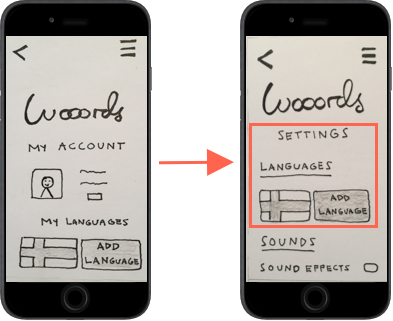 Wooords
MY ACCOUNT
MY LANGUAGES
ADD
LANGUAGE
Wooords
SETTINGS
LANGUAGES
ADD
LANGUAGE
SOUNDS
SOUND EFFECTS